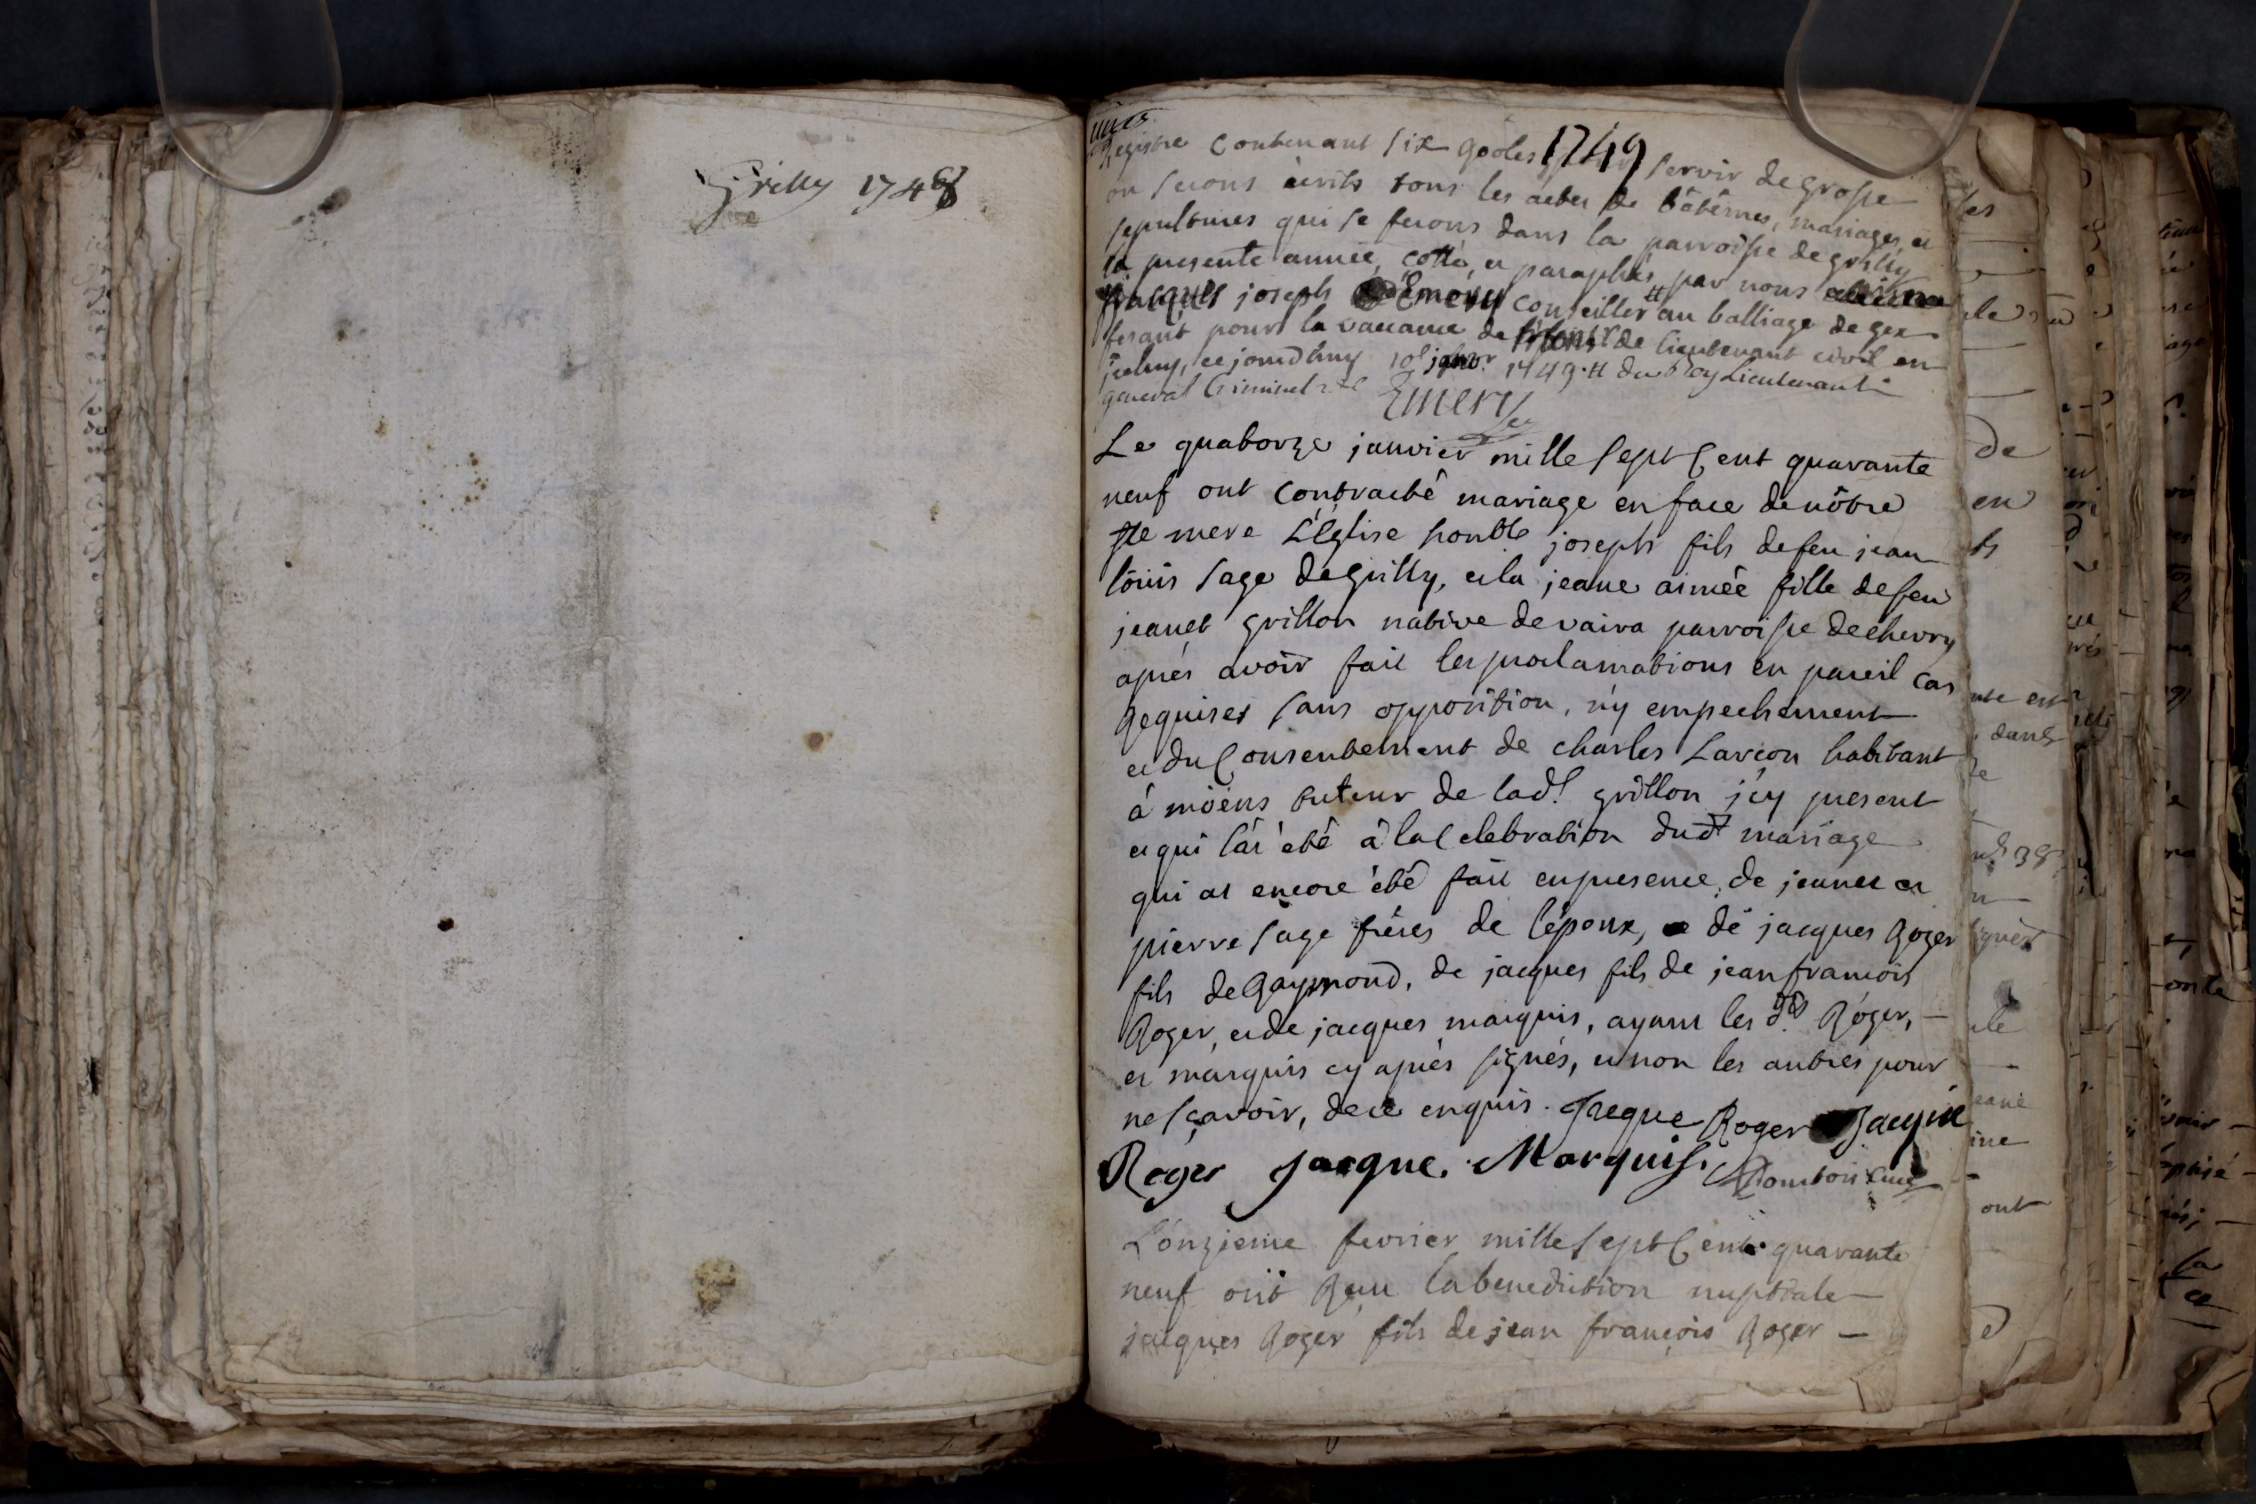 Grilly 1748
Registre Contenant six 1749 servir de grosse
ou serons écrits tous les actes de bâtêmes, mariages, et
sepultures qui se ferons dans la parroisse de grilly
la presente année, cotté, et paraphés par nous
jacques joseph Emery Conseiller # au balliage de gex
fesant pour la vacance de de lieutenant civil en
jceluy, ce jourdhuy 10e janvr 1749. # du Roy Lieutenant
general Criminel
Emery
Le quatorze janvier mille sept Cent quarante
neuf ont contracté mariage en face de nôtre
ste mere L'Église honble joseph fils de feu jean
loüis sage de grilly, et la jeane aimée fille de feu
jeanet grillon native de vaira parroisse de chevry
aprés avoir fait les proclamations en pareil cas
Requises sans opposition, n'y empechement
et du Consentement de charles Larcon habitant
á möens tuteur de lad. grillon j'cy present
et qui l'at été á la Celebration dud. mariage
qui at encore été fait en presence de jeanet et
pierre sage fréres de l'époux, de jacques Roger
fils de Raymond, de jacques fils de jean francois
Roger, et de jacques marquis, ayant les d. Róger,
et marquis cy aprés signés, et non les autres pour
ne sçavoir, de ce enquis. Jaque Roger Jaque
Roger Jacque. Marquis. Curé
L'onzieme fevrier mille sept Cent quarante
neuf ont Reçu la benediction nuptiale
jacques Roger fils de jean françois Roger